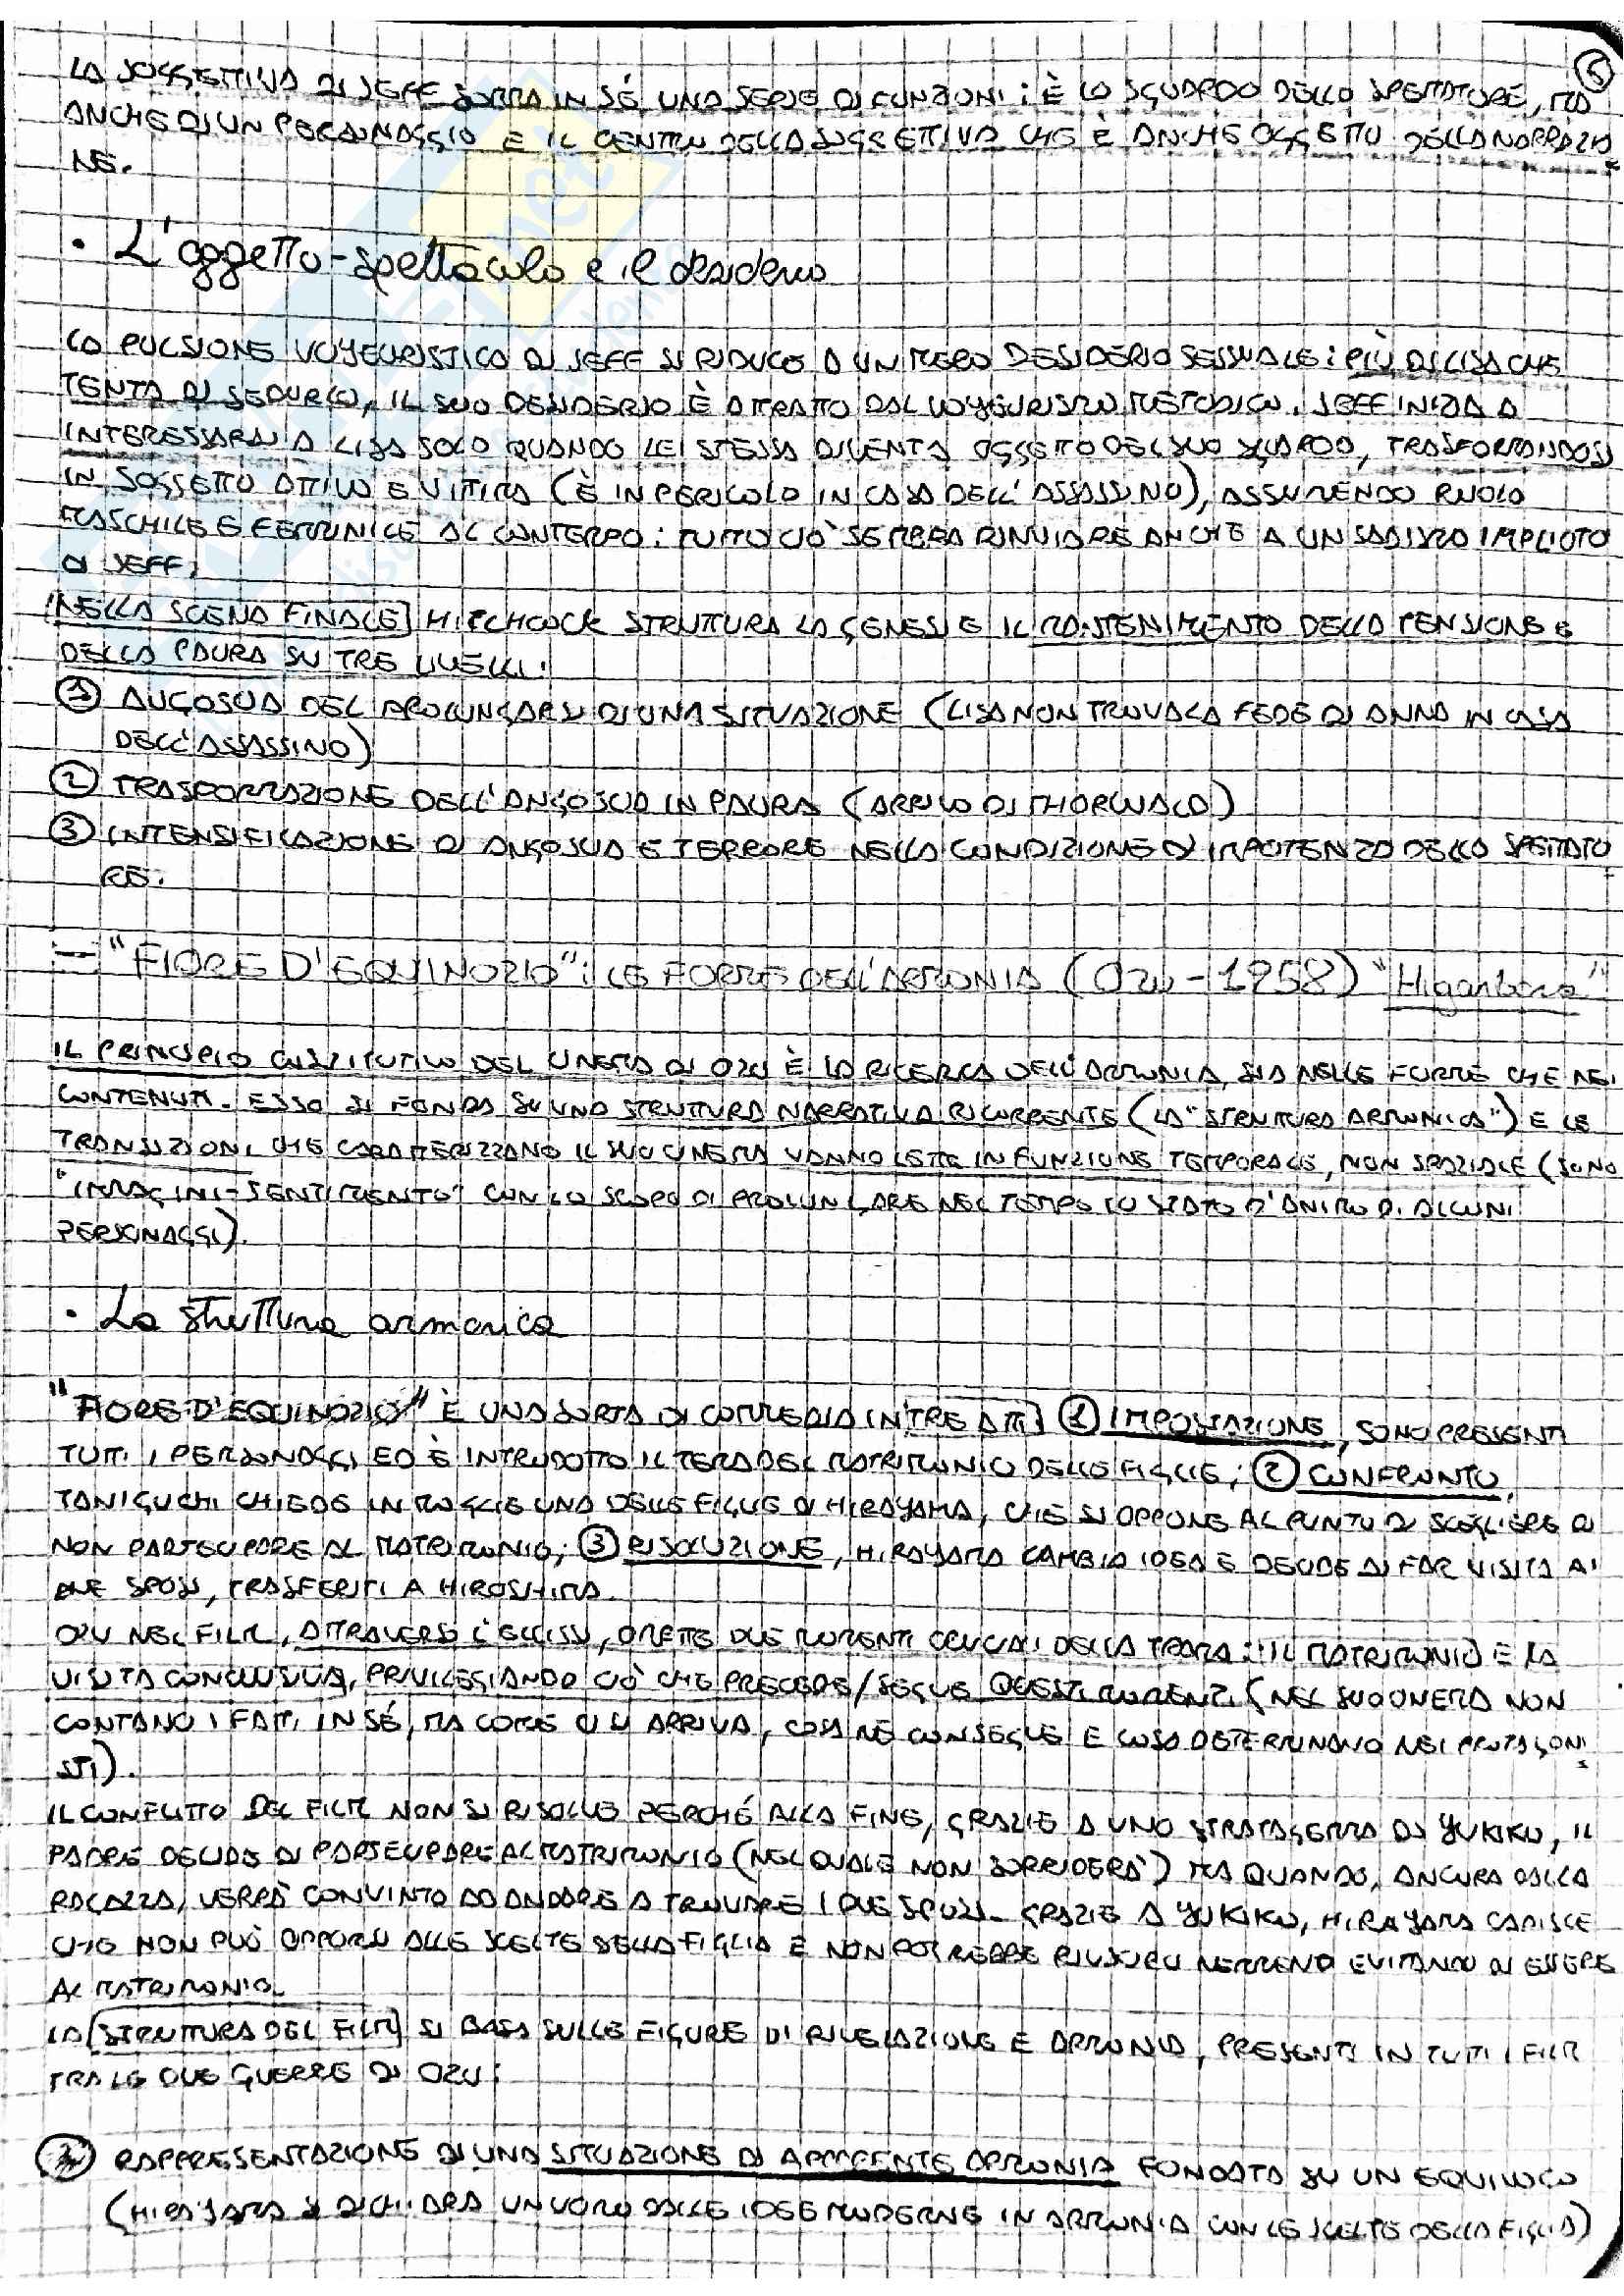 5
LA SOGGETTIVA DI JEFF SOMMA IN SÉ UNA SERIE DI FUNZIONI: È LO SGUARDO DELLO SPETTATORE, MA
ANCHE DI UN PERSONAGGIO E IL CENTRO DELLA SOGGETTIVA CHE È ANCHE OGGETTO DELLA NARRAZIO
NE.
• L'oggetto-spettacolo e il desiderio
LA PULSIONE VOYEURISTICA DI JEFF SI RIDUCE A UN MERO DESIDERIO SESSUALE: PIÙ DI LISA CHE
TENTA DI SEDURLO, IL SUO DESIDERIO È ATTRATTO DAL VOYEURISMO METODICO. JEFF INIZIA A
INTERESSARSI A LISA SOLO QUANDO LEI STESSA DIVENTA OGGETTO DEL SUO SGUARDO, TRASFORMANDOSI
IN SOGGETTO ATTIVO E VITTIMA (È IN PERICOLO IN CASA DELL'ASSASSINO), ASSUMENDO RUOLO
MASCHILE E FEMMINILE AL CONTEMPO: TUTTO CIÒ SEMBRA RINVIARE ANCHE A UN SADISMO IMPLICITO
DI JEFF.
NELLA SCENA FINALE HITCHCOCK STRUTTURA LA GENESI E IL MANTENIMENTO DELLA TENSIONE E
DELLA PAURA SU TRE LIVELLI:
① ANGOSCIA DEL PROLUNGARSI DI UNA SITUAZIONE (LISA NON TROVA LA FEDE DI ANNA IN CASA
DELL'ASSASSINO)
② TRASFORMAZIONE DELL'ANGOSCIA IN PAURA (ARRIVO DI THORWALD)
③ INTENSIFICAZIONE DI ANGOSCIA E TERRORE NELLA CONDIZIONE DI IMPOTENZA DELLO SPETTATO
RE.
- "FIORE D'EQUINOZIO": LE FORME DELL'ARMONIA (Ozu - 1958) "Higanbana"
IL PRINCIPIO COSTITUTIVO DEL CINEMA DI OZU È LA RICERCA DELL'ARMONIA, SIA NELLE FORME CHE NEI
CONTENUTI. ESSO SI FONDA SU UNA STRUTTURA NARRATIVA RICORRENTE (LA "STRUTTURA ARMONICA") E LE
TRANSIZIONI CHE CARATTERIZZANO IL SUO CINEMA VANNO LETTE IN FUNZIONE TEMPORALE, NON SPAZIALE (SONO
"IMMAGINI-SENTIMENTO" CON LO SCOPO DI PROLUNGARE NEL TEMPO LO STATO D'ANIMO DI ALCUNI
PERSONAGGI).
• La struttura armonica
"FIORE D'EQUINOZIO" È UNA SORTA DI COMMEDIA IN TRE ATTI ① IMPOSTAZIONE, SONO PRESENTI
TUTTI I PERSONAGGI ED È INTRODOTTO IL TEMA DEL MATRIMONIO DELLE FIGLIE; ② CONFRONTO,
TANIGUCHI CHIEDE IN MOGLIE UNA DELLE FIGLIE DI HIRAYAMA, CHE SI OPPONE AL PUNTO DI SCEGLIERE DI
NON PARTECIPARE AL MATRIMONIO; ③ RISOLUZIONE, HIRAYAMA CAMBIA IDEA E DECIDE DI FAR VISITA AI
DUE SPOSI, TRASFERITI A HIROSHIMA.
OZU NEL FILM, ATTRAVERSO L'ELLISSI, OMETTE DUE MOMENTI CRUCIALI DELLA TRAMA: IL MATRIMONIO E LA
VISITA CONCLUSIVA, PRIVILEGIANDO CIÒ CHE PRECEDE/SEGUE QUESTI MOMENTI (NEL SUO CINEMA NON
CONTANO I FATTI IN SÉ, MA COME CI SI ARRIVA, COSA NE CONSEGUE E COSA DETERMINANO NEI PROTAGONI
STI).
IL CONFLITTO DEL FILM NON SI RISOLVE PERCHÉ ALLA FINE, GRAZIE A UNO STRATAGEMMA DI YUKIKO, IL
PADRE DECIDE DI PARTECIPARE AL MATRIMONIO (NEL QUALE NON SORRIDERÀ) MA QUANDO, ANCORA DALLA
RAGAZZA, VERRÀ CONVINTO AD ANDARE A TROVARE I DUE SPOSI. GRAZIE A YUKIKO, HIRAYAMA CAPISCE
CHE NON PUÒ OPPORSI ALLE SCELTE DELLA FIGLIA E NON POTREBBE RIUSCIRCI NEMMENO EVITANDO DI ESSERE
AL MATRIMONIO.
LA STRUTTURA DEL FILM SI BASA SULLE FIGURE DI RIVELAZIONE E ARMONIA, PRESENTI IN TUTTI I FILM
TRA LE DUE GUERRE DI OZU:
RAPPRESENTAZIONE DI UNA SITUAZIONE DI APPARENTE ARMONIA FONDATA SU UN EQUIVOCO
(HIRAYAMA SI DICHIARA UN UOMO DALLE IDEE MODERNE IN ARMONIA CON LE SCELTE DELLA FIGLIA)